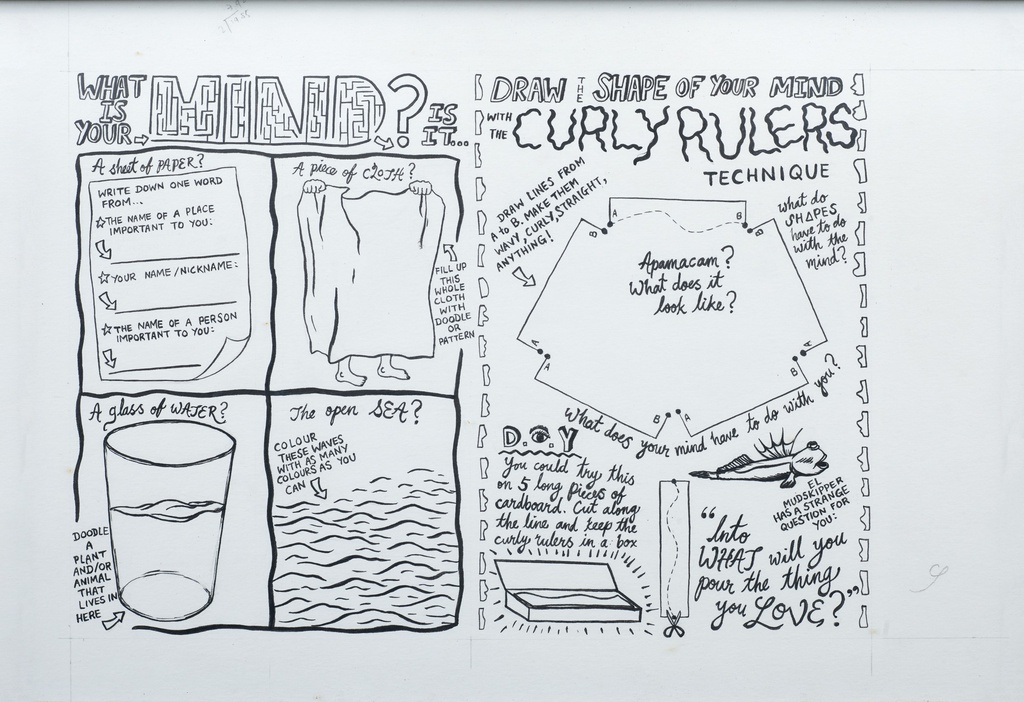 WHAT
IS
YOUR
MIND?
IS
IT...
A sheet of PAPER?
WRITE DOWN ONE WORD
FROM...
☆THE NAME OF A PLACE
IMPORTANT TO YOU:
☆YOUR NAME/NICKNAME:
☆THE NAME OF A PERSON
IMPORTANT TO YOU:
A piece of CLOTH?
FILL UP
THIS
WHOLE
CLOTH
WITH
DOODLE
OR
PATTERN
A glass of WATER?
DOODLE
A
PLANT
AND/OR
ANIMAL
THAT
LIVES IN
HERE
The open SEA?
COLOUR
THESE WAVES
WITH AS MANY
COLOURS AS YOU
CAN
DRAW THE SHAPE OF YOUR MIND
WITH
THE
CURLY RULERS
TECHNIQUE
DRAW LINES FROM
A to B. MAKE THEM
WAVY, CURLY, STRAIGHT,
ANYTHING!
A
B
B
A
A
B
A
B
A
B
what do
SHAPES
have to do
with the
mind?
Apamacam?
What does it
look like?
What does your mind have to do with you?
D.O.Y
You could try this
on 5 long pieces of
cardboard. Cut along
the line and keep the
curly rulers in a box
EL
MUDSKIPPER
HAS A STRANGE
QUESTION FOR
YOU:
"Into
WHAT will you
pour the thing
you LOVE?"